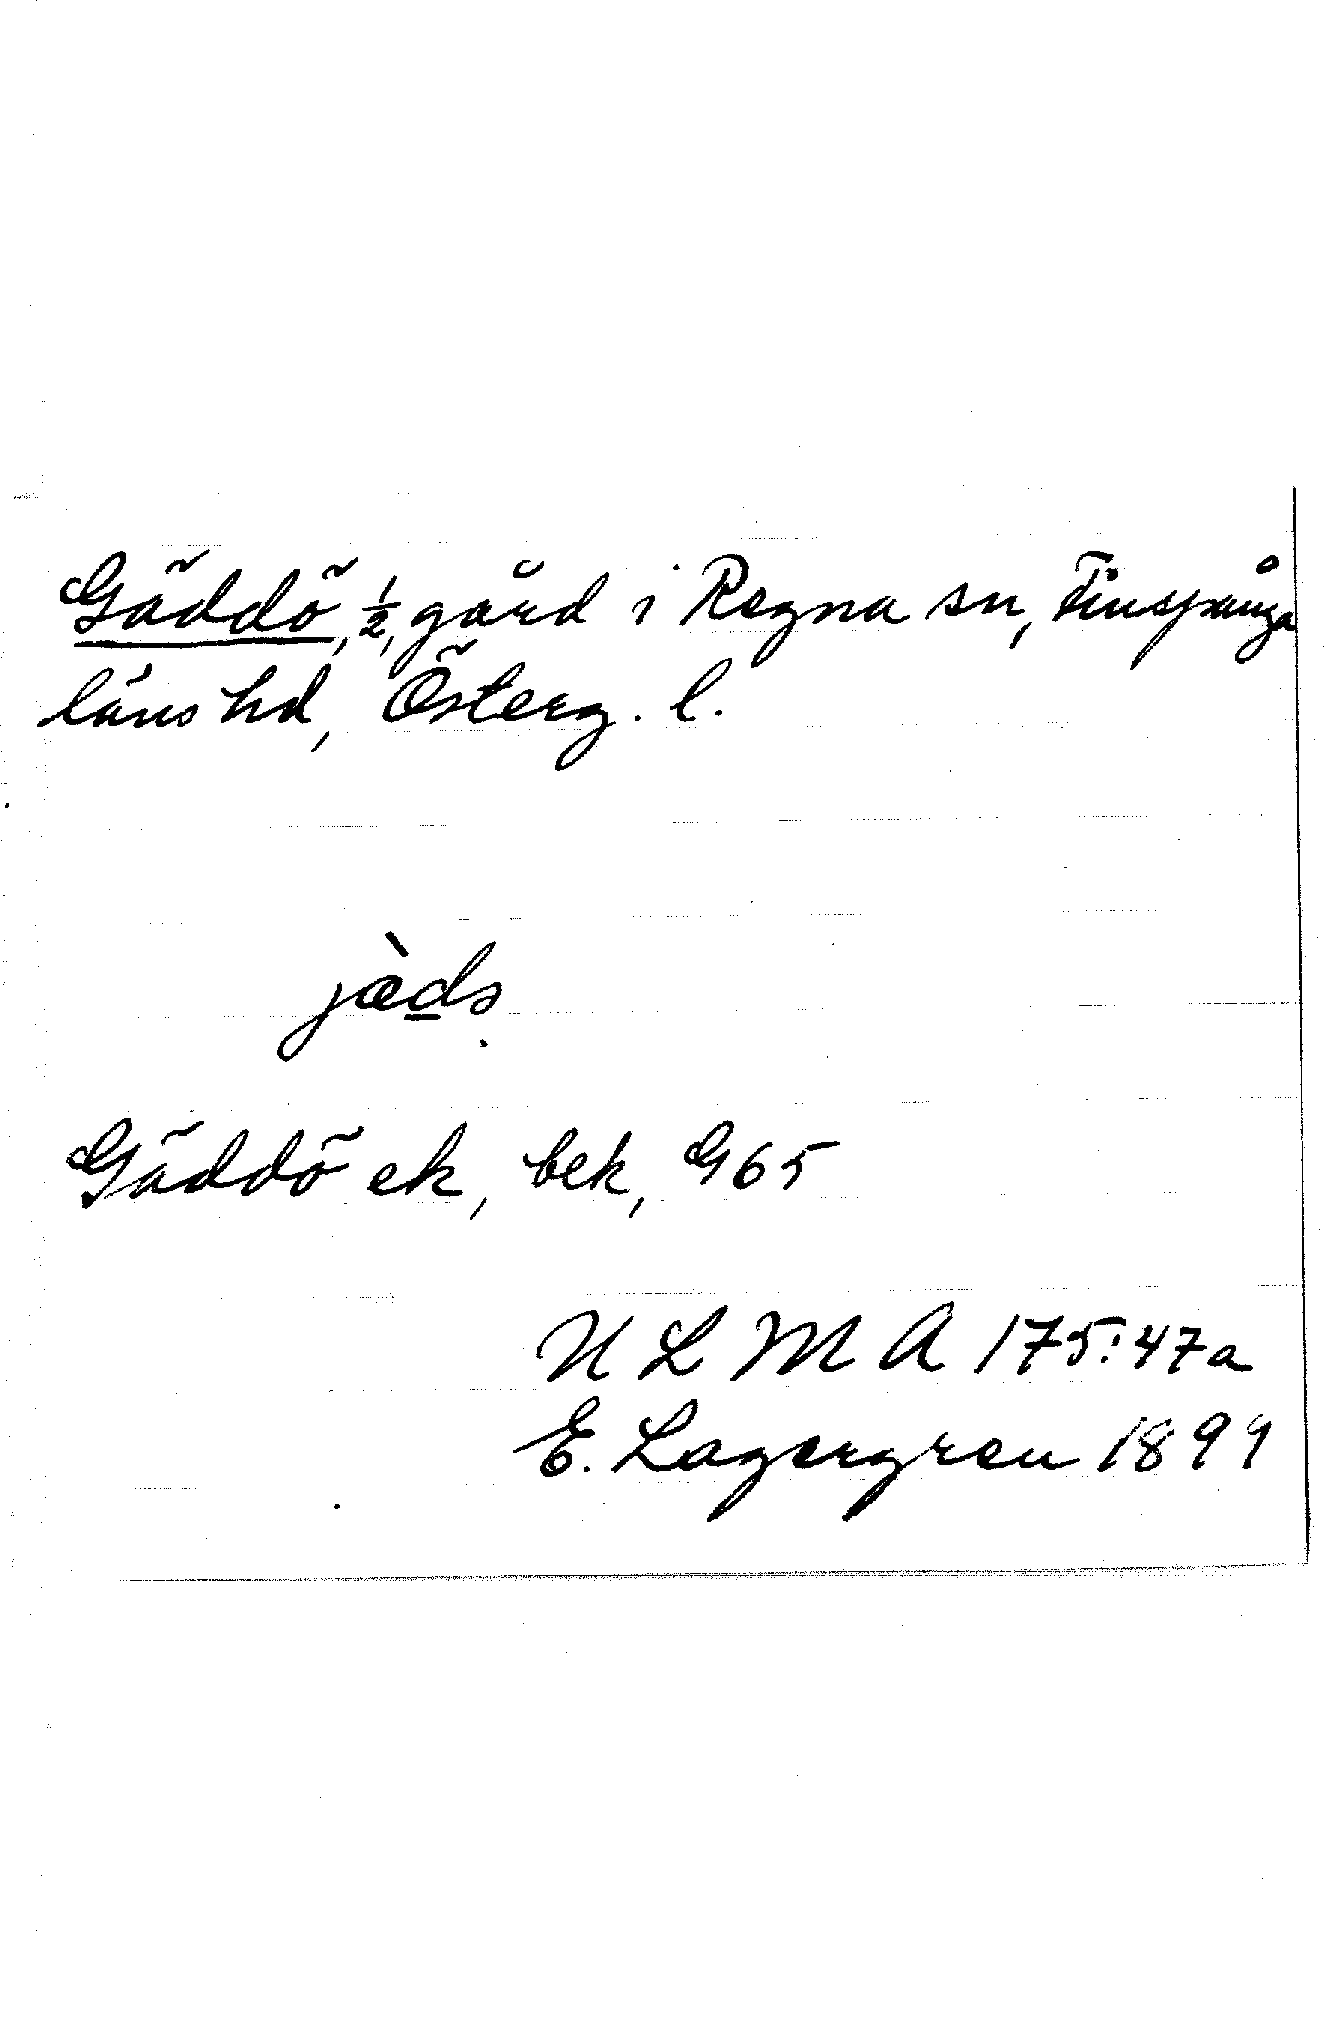 Gäddö, ½, gård i Regna sn, Finspånga
läns hd, Österg. l.
Gäddö ek, bek, G65
ULMA 175:47a
E. Lagergren 1899